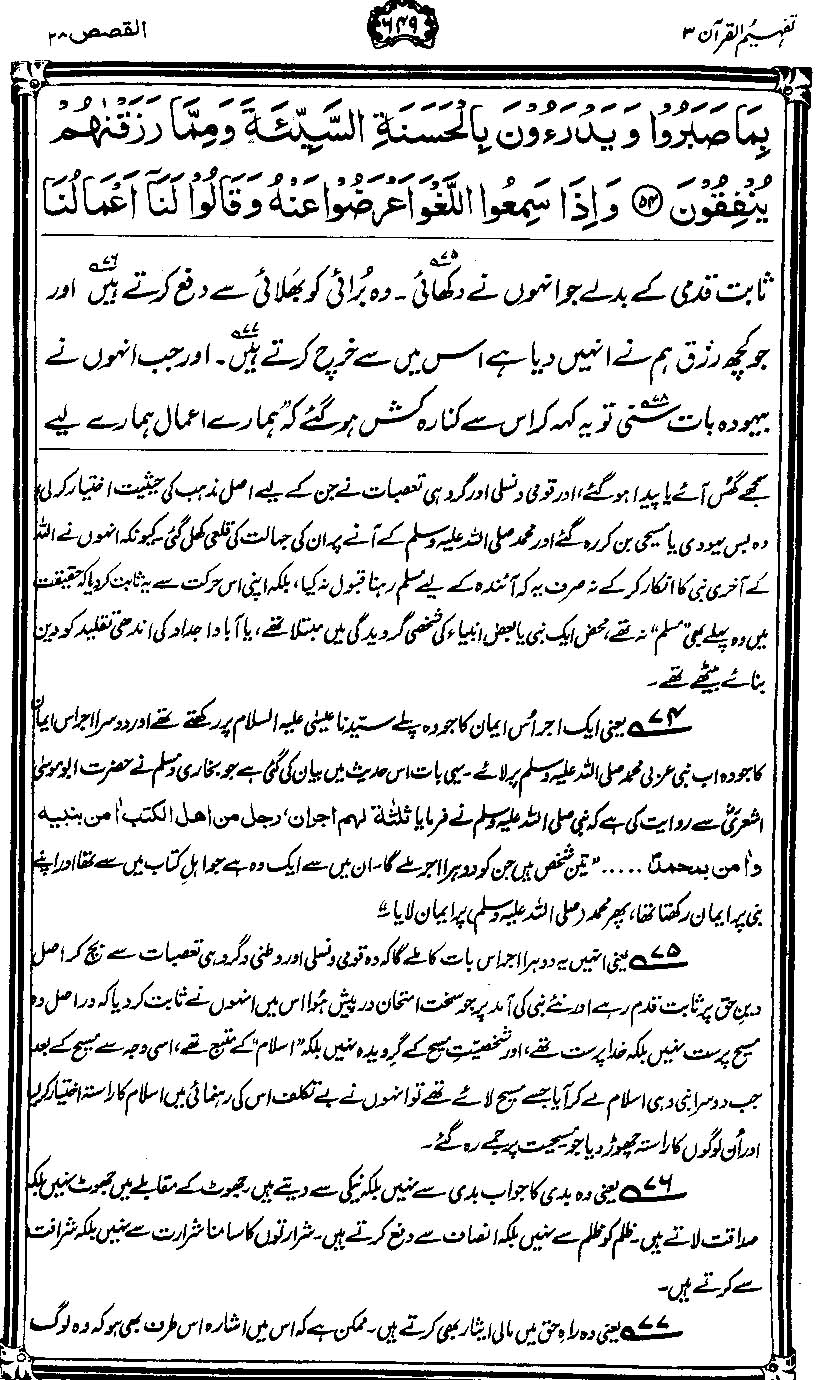 تفہیم القرآن ۳
۶۴۹
القصص ۲۸
بِمَا صَبَرُوْا وَيَدْرَءُوْنَ بِالْحَسَنَةِ السَّيِّئَةَ وَمِمَّا رَزَقْنٰهُمْ
يُنْفِقُوْنَ ﴿۵۴﴾ وَاِذَا سَمِعُوا اللَّغْوَ اَعْرَضُوْا عَنْهُ وَقَالُوْا لَنَآ اَعْمَالُنَا
ثابت قدمی کے بدلے جو انہوں نے دکھائی۷۵۔ وہ بُرائی کو بھَلائی سے دفع کرتے ہیں۷۶ اور
جو کچھ رزق ہم نے انہیں دیا ہے اس میں سے خرچ کرتے ہیں۷۷۔ اور جب انہوں نے
بیہودہ بات سُنی۷۸ تو یہ کہہ کر اس سے کنارہ کش ہو گئے کہ ”ہمارے اعمال ہمارے لیے
سمجھے گھُس آئے یا پیدا ہو گئے، اور قومی و نسلی اور گروہی تعصبات نے جن کے لیے اصل مذہب کی حیثیت اختیار کر لی
وہ بس یہودی یا مسیحی بن کر رہ گئے اور محمد صلی اللہ علیہ وسلم کے آنے پر ان کی جہالت کی قلعی کھل گئی۔ کیونکہ انہوں نے اللہ
کے آخری نبی کا انکار کر کے نہ صرف یہ کہ آئندہ کے لیے مسلم رہنا قبول نہ کیا، بلکہ اپنی اس حرکت سے یہ ثابت کر دیا کہ حقیقت
میں وہ پہلے بھی ”مسلم“ نہ تھے، محض ایک نبی یا بعض انبیاء کی شخصی گرویدگی میں مبتلا تھے، یا آباء و اجداد کی اندھی تقلید کو دین
بنائے بیٹھے تھے۔
۷۴ یعنی ایک اجر اُس ایمان کا جو وہ پہلے سیّدنا عیسٰی علیہ السلام پر رکھتے تھے اور دوسرا اجر اس ایمان
کا جو وہ اب نبی عربی محمد صلی اللہ علیہ وسلم پر لائے۔ یہی بات اس حدیث میں بیان کی گئی ہے جو بخاری و مسلم نے حضرت ابو موسیٰ
اشعریؓ سے روایت کی ہے کہ نبی صلی اللہ علیہ وسلم نے فرمایا ثلٰثۃ لہم اجران، رجل من اھل الکتٰب اٰمن بنبیہ
واٰمن بمحمدٍ ..... ”تین شخص ہیں جن کو دوہرا اجر ملے گا۔ ان میں سے ایک وہ ہے جو اہلِ کتاب میں سے تھا اور اپنے
نبی پر ایمان رکھتا تھا، پھر محمد (صلی اللہ علیہ وسلم) پر ایمان لایا“۔
۷۵ یعنی انہیں یہ دوہرا اجر اس بات کا ملے گا کہ وہ قومی و نسلی اور وطنی و گروہی تعصبات سے بچ کر اصل
دینِ حق پر ثابت قدم رہے اور نئے نبی کی آمد پر جو سخت امتحان در پیش ہُوا اس میں انہوں نے ثابت کر دیا کہ دراصل وہ
مسیح پرست نہیں بلکہ خدا پرست تھے، اور شخصیّتِ مسیح کے گرویدہ نہیں بلکہ ”اسلام“ کے متبع تھے، اسی وجہ سے مسیح کے بعد
جب دوسرا نبی وہی اسلام لے کر آیا جسے مسیح لائے تھے تو انہوں نے بے تکلف اس کی رہنمائی میں اسلام کا راستہ اختیار کر لیا
اور اُن لوگوں کا راستہ چھوڑ دیا جو مسیحیت پر جمے رہ گئے۔
۷۶ یعنی وہ بدی کا جواب بدی سے نہیں بلکہ نیکی سے دیتے ہیں۔ جھوٹ کے مقابلے میں جھوٹ نہیں بلکہ
صداقت لاتے ہیں۔ ظلم کو ظلم سے نہیں بلکہ انصاف سے دفع کرتے ہیں۔ شرارتوں کا سامنا شرارت سے نہیں بلکہ شرافت
سے کرتے ہیں۔
۷۷ یعنی وہ راہِ حق میں مالی ایثار بھی کرتے ہیں۔ ممکن ہے کہ اس میں اشارہ اس طرف بھی ہو کہ وہ لوگ